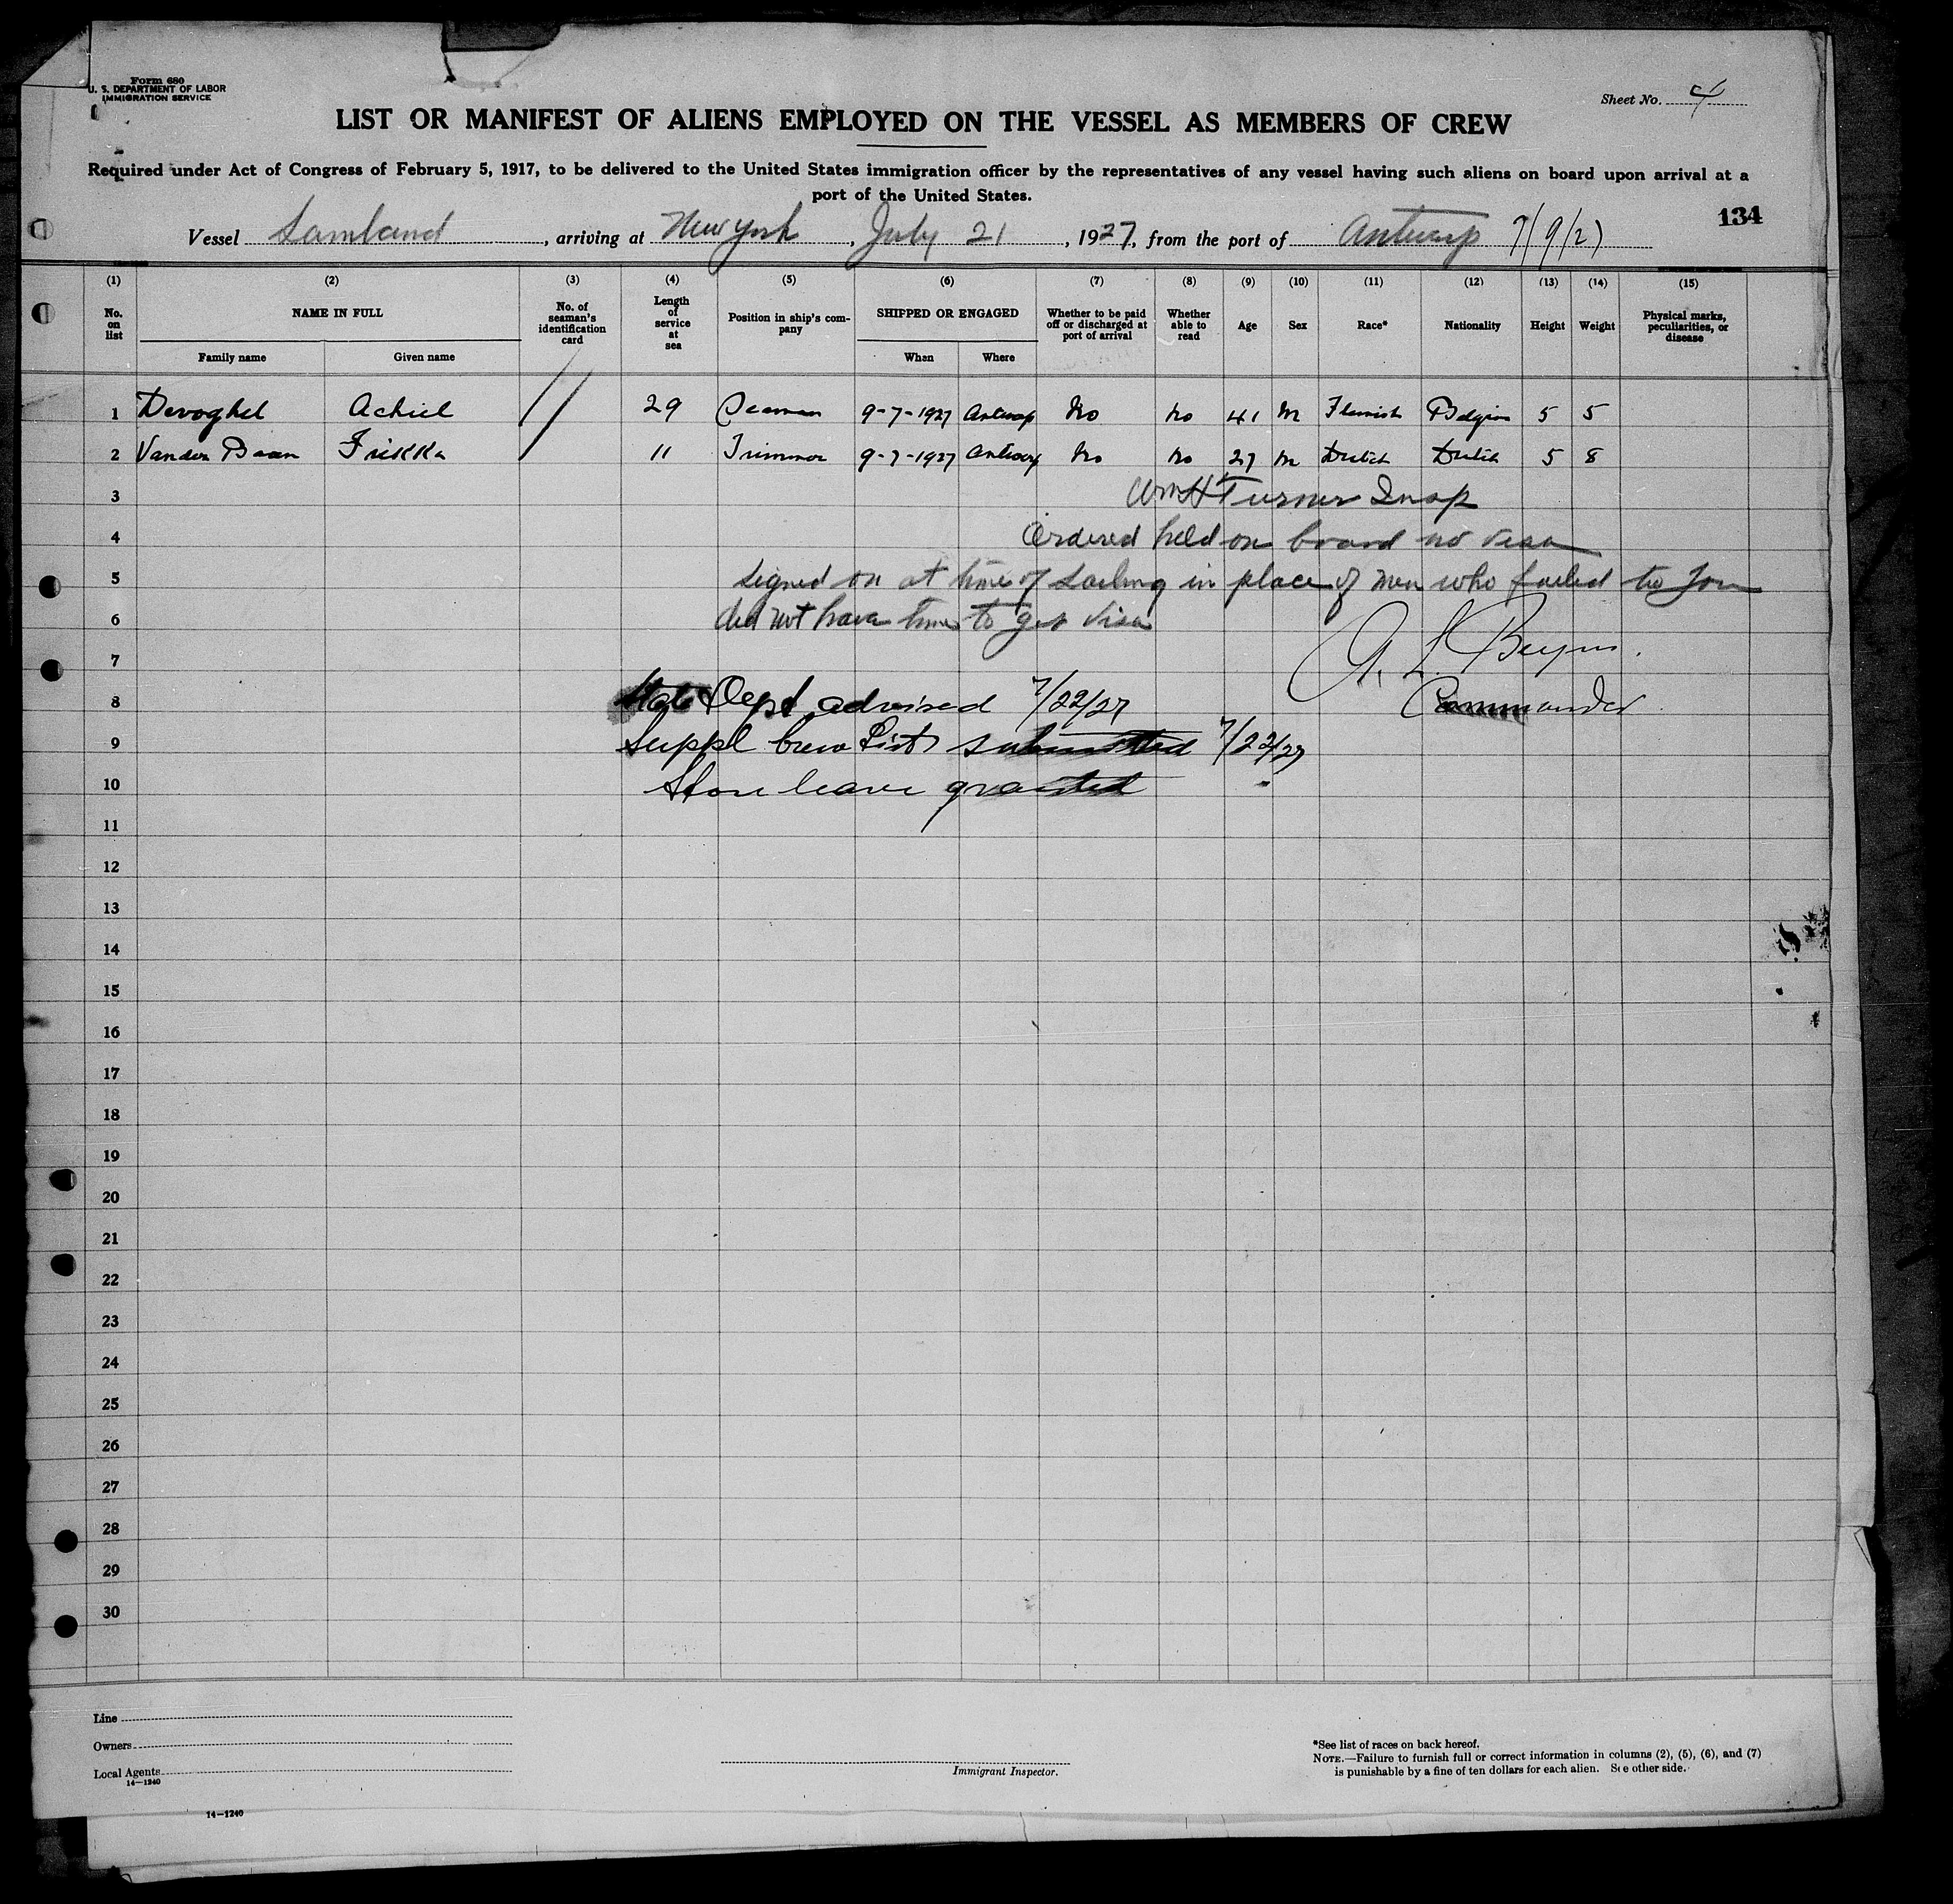 Form 680
U. S. DEPARTMENT OF LABOR
IMMIGRATION SERVICE
Sheet No. 4
LIST OR MANIFEST OF ALIENS EMPLOYED ON THE VESSEL AS MEMBERS OF CREW
Required under Act of Congress of February 5, 1917, to be delivered to the United States immigration officer by the representatives of any vessel having such aliens on board upon arrival at a
port of the United States.
134
Vessel Samland, arriving at New York, July 21, 1927, from the port of Antwerp 7/9/27
(1) (2) (3) (4) (5) (6) (7) (8) (9) (10) (11) (12) (13) (14) (15)
No. on list
NAME IN FULL
Family name Given name
No. of seaman's identification card
Length of service at sea
Position in ship's company
SHIPPED OR ENGAGED
When Where
Whether to be paid off or discharged at port of arrival
Whether able to read
Age
Sex
Race*
Nationality
Height
Weight
Physical marks, peculiarities, or disease
1 Devoghel Achiel 29 Seaman 9-7-1927 Antwerp No No 41 M Flemish Belgian 5 5
2 Vanden Baan Frikke 11 Trimmer 9-7-1927 Antwerp No No 27 M Dutch Dutch 5 8
3 Wm H Turner Insp
4 Ordered held on board no visa
5 Signed on at time of sailing in place of men who failed to join
6 did not have time to get visa
7 A. L. Commander
8 State Dept advised 7/22/27
9 Suppl Crew List submitted 7/22/27
10 Shore leave granted "
11
12
13
14
15
16
17
18
19
20
21
22
23
24
25
26
27
28
29
30
Line
Owners
Local Agents
14—1240
Immigrant Inspector.
*See list of races on back hereof.
NOTE.—Failure to furnish full or correct information in columns (2), (5), (6), and (7)
is punishable by a fine of ten dollars for each alien. See other side.
14—1240